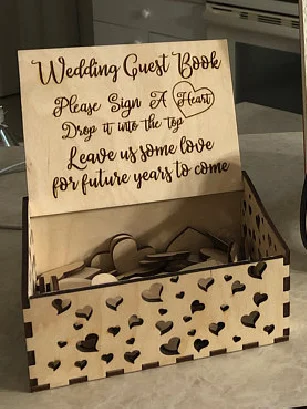 Wedding Guest Book
Please Sign A Heart
Drop it into the top
Leave us some love
for future years to come